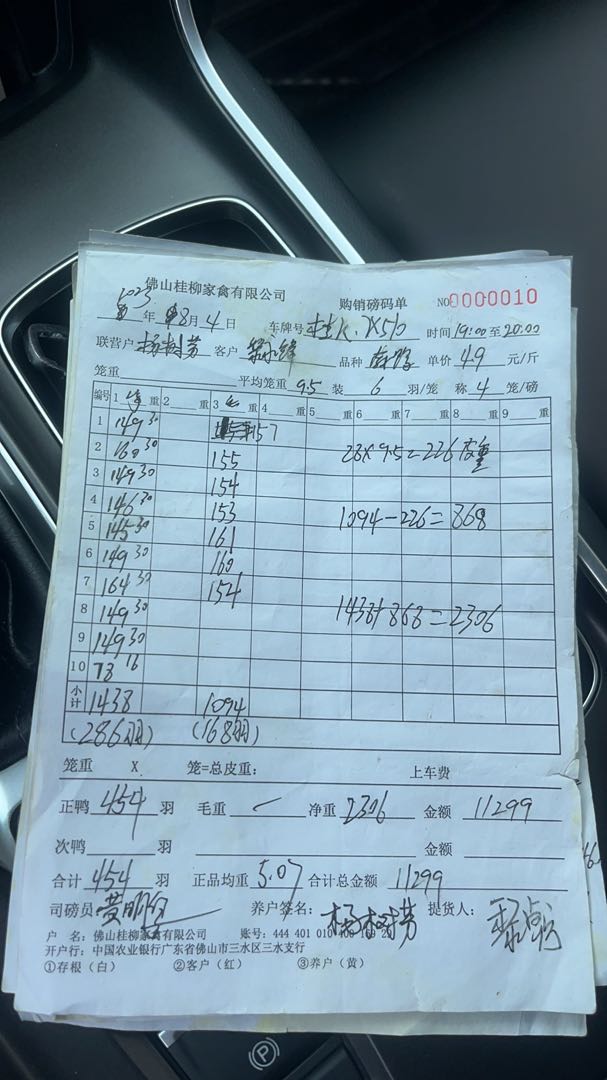 佛山桂柳家禽有限公司 购销磅码单 NO 0000010
2023年8月4日 车牌号 X510 时间19:00至20:00
联营户 杨树芳 客户 品种 单价 4.9 元/斤
笼重 平均笼重 9.5 装 6 羽/笼 称 4 笼/磅
编号 1 重 2 重 3 重 4 重 5 重 6 重 7 重 8 重 9 重
1 149 30 157
2 160 30 155 28×9.5=226皮重
3 149 30 154
4 146 30 153 1094-226=868
5 145 30 161
6 149 30 160
7 164 30 154
8 149 30 1438+868=2306
9 149 30
10 78 16
小计 1438 1094
(286羽) (168羽)
笼重 X 笼=总皮重: 上车费
正鸭 454 羽 毛重 净重 2306 金额 11299
次鸭 羽 金额
合计 454 羽 正品均重 5.07 合计总金额 11299
司磅员 养户签名: 杨树芳 提货人:
户 名: 佛山桂柳家禽有限公司 账号: 444 401 010 400 169 20
开户行: 中国农业银行广东省佛山市三水区三水支行
①存根(白) ②客户(红) ③养户(黄)
P